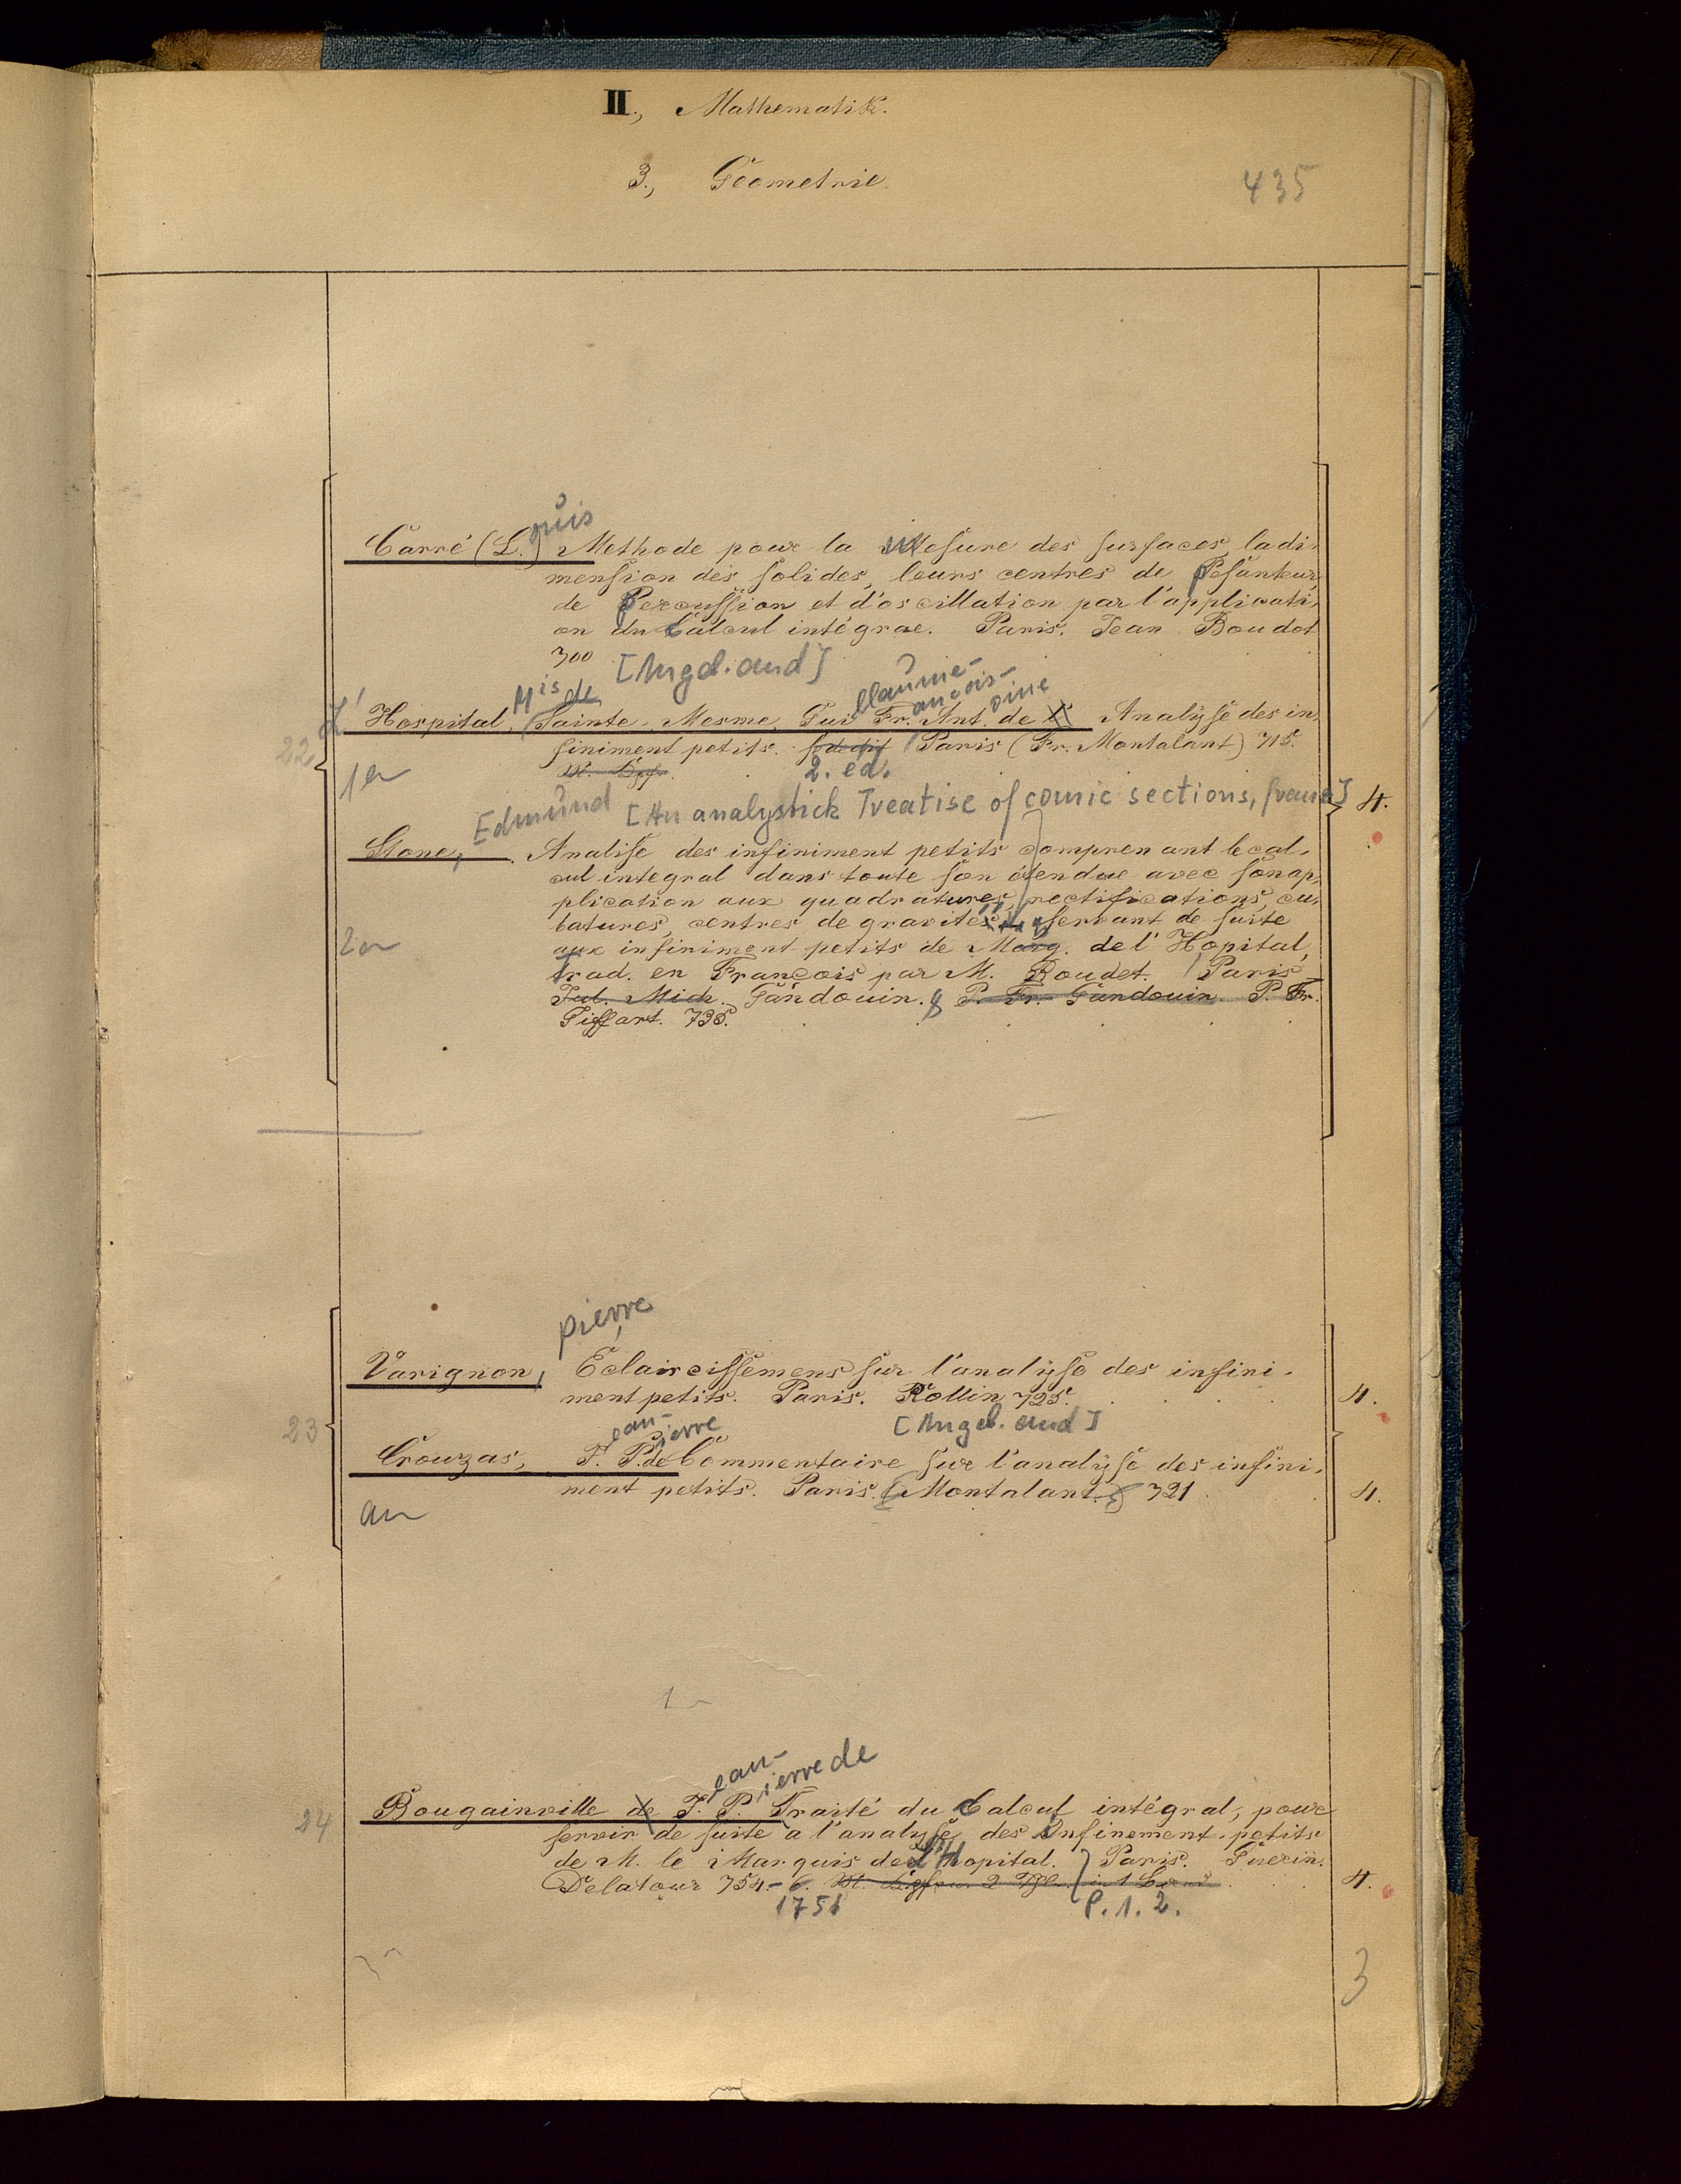 II., Mathematik.
3., Geometrie.
435
ouis
Carré (L.) Methode pour la Mesure des surfaces, la di-
mension des solides, leurs centres de Pesanteur
de Percussion et d'oscillation par l'applicati-
on du Calcul intégrae. Paris. Jean Boudot
700 [Angeb. and]
Mis de
llaume-
ançois-
oine
22
L' Hospital, Sainte-Mesme, Gui Fr. Ant. de L' Analyse des in-
finiment petits. Paris (Fr. Montalant) 715.
2. ed.
1 an
Edmund [An analystick Treatise of comic sections, franz] 4.
Stone, Analise des infiniment petits comprenant le cal-
cul integral dans toute son étendue avec son ap-
plication aux quadratures, rectifications, cu-
batures, centres de gravités servant de suite
2 an
aux infiniment petits de Marq. de l'Hopital,
trad. en François par M. Rondet. Paris
Jul. Mich. Gandouin. P. Fr. Gandouin. P. Fr.
Giffart. 735.
pierre
Varignon, Eclaircissemens sur l'analyse des infini-
ment petits. Paris. Rollin 725. 4.
23
ean-
ierre
[Angeb. and]
Crouzas, J. P. de Commentaire sur l'analyse des infini-
ment petits. Paris. (Montalant.) 721 4.
an
1
ean-
ierre de
24
Bougainville de J. P. Traité du Calcul intégral, pour
servir de suite a l'analyse des Infinement-petits
de M. le Marquis de l'Hopital. Paris. Guerin.
Delatour 754-6. 4.
1751 P. 1. 2.
3